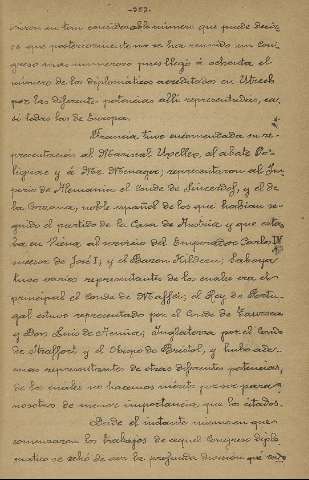 -252-
vieron en tan considerable número que puede decir-
se que posteriormente no se ha reunido un Con-
greso mas numeroso pues llegó á ochenta el
número de los diplomáticos acreditados en Utrech
por las diferentes potencias allí representadas, ca-
si todas las de Europa.
Francia tuvo encomendada su re-
presentación al Mariscal Uxelles, al abate Po-
lignac y á Mr. Menager; representaron al Im-
perio de Alemania el Conde de Sincendof, y el de
la Corzana, noble español de los que habían se-
guido el partido de la Casa de Austria y que esta-
ba en Viena al servicio del Emperador Carlos IV
sucesor de José I; y el Baron Kilderen; Saboya
tuvo varios representantes de los cuales era el
principal el Conde de Maffei; el Rey de Portu-
gal estuvo representado por el Conde de Taurocca
y Don Luis de Acuña; Inglaterra por el Conde
de Straffort y el Obispo de Bristol, y hubo ade-
mas representantes de otras diferentes potencias,
de los cuales no hacemos mérito por ser para
nosotros de menor importancia que los citados.
Desde el instante mismo en que
comenzaron los trabajos de aquel Congreso diplo-
mático se echó de ver la profunda division que